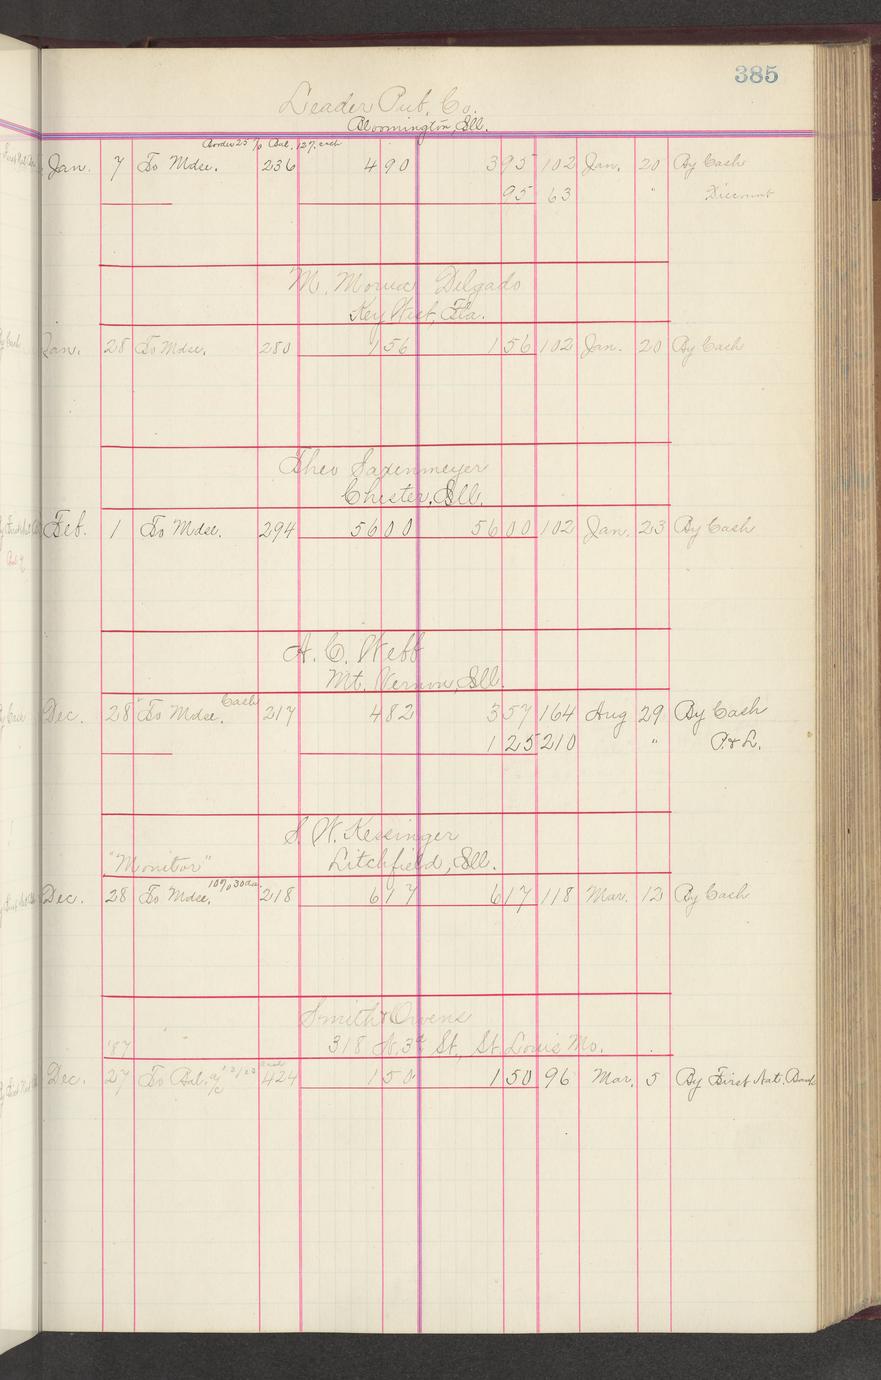 385
Leader Pub. Co.
Bloomington, Ill.
Border 25% Bal. 12% each
Jan. 7 To Mdse. 236 4 90 3 95 102 Jan. 20 By Cash
95 63 " Discount
M. Delgado
Key West, Fla.
Jan. 28 To Mdse. 280 1 56 1 56 102 Jan. 20 By Cash
Theo Saxenmeyer
Chester, Ill.
Feb. 1 To Mdse. 294 56 00 56 00 102 Jan. 23 By Cash
A. C. Webb
Mt. Vernon, Ill.
Dec. 28 To Mdse. Cash 217 4 82 3 57 164 Aug 29 By Cash
1 25 210 " P. & L.
S. W. Kessinger
"Monitor" Litchfield, Ill.
Dec. 28 To Mdse. 10% 30 da. 218 6 17 6 17 118 Mar. 12 By Cash
Smith & Owens
'87 318 N. 3d St., St. Louis Mo.
Dec. 27 To Bal. a/c 424 1 50 1 50 96 Mar. 5 By First Nat. Bank